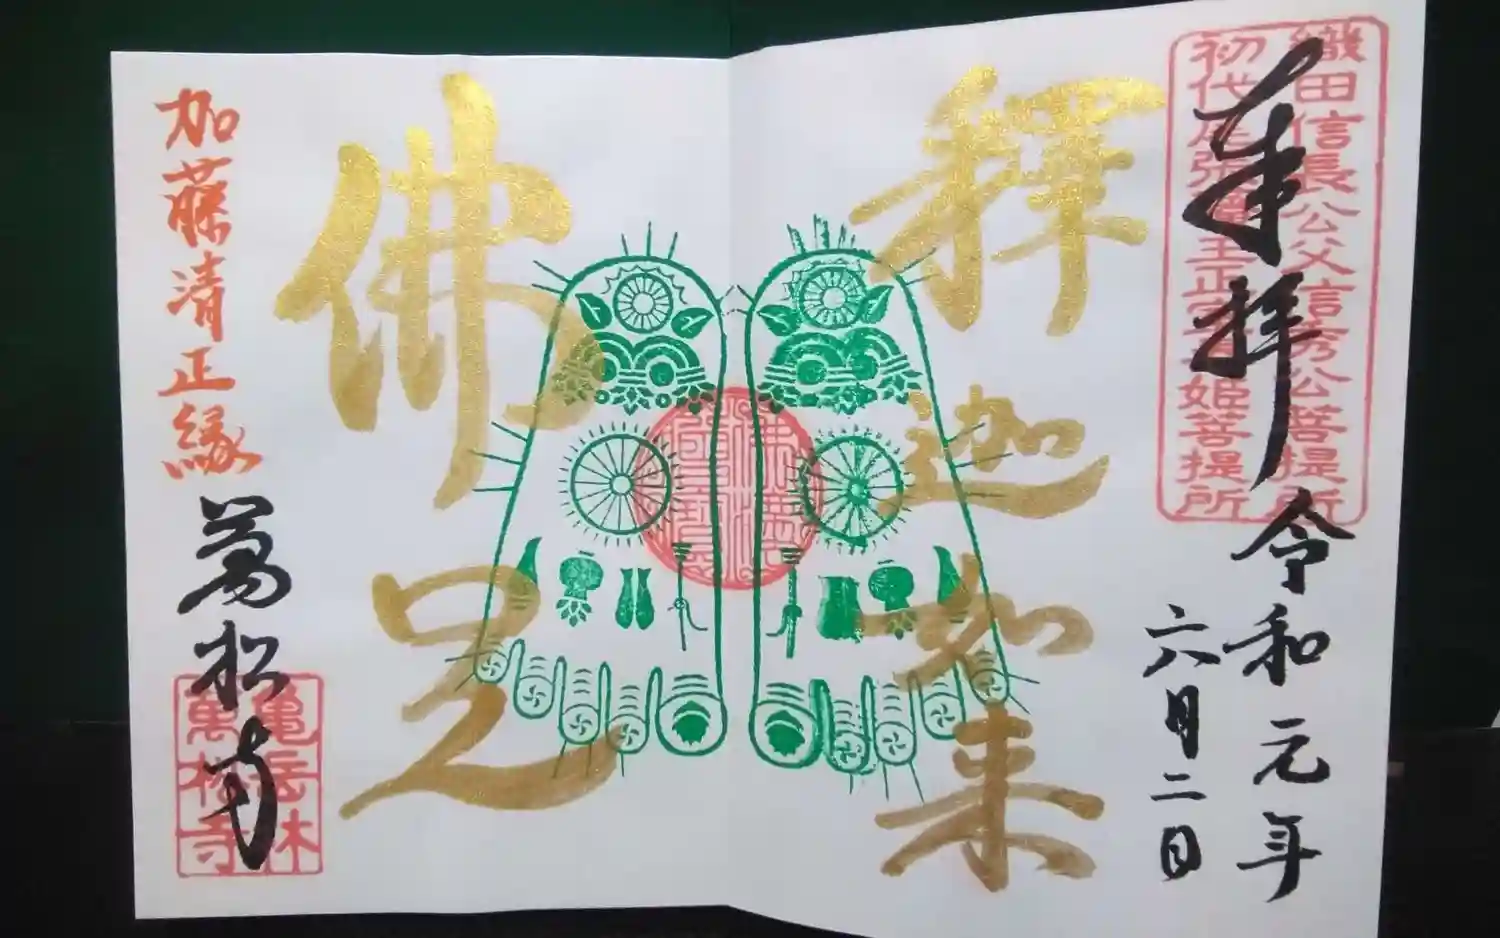 織田信長公父信秀公菩提所
初代尾張藩主正室春姫菩提所
奉拝
令和元年
六月二日
釋迦如来
佛足
加藤清正縁
萬松寺
亀岳林
萬松寺